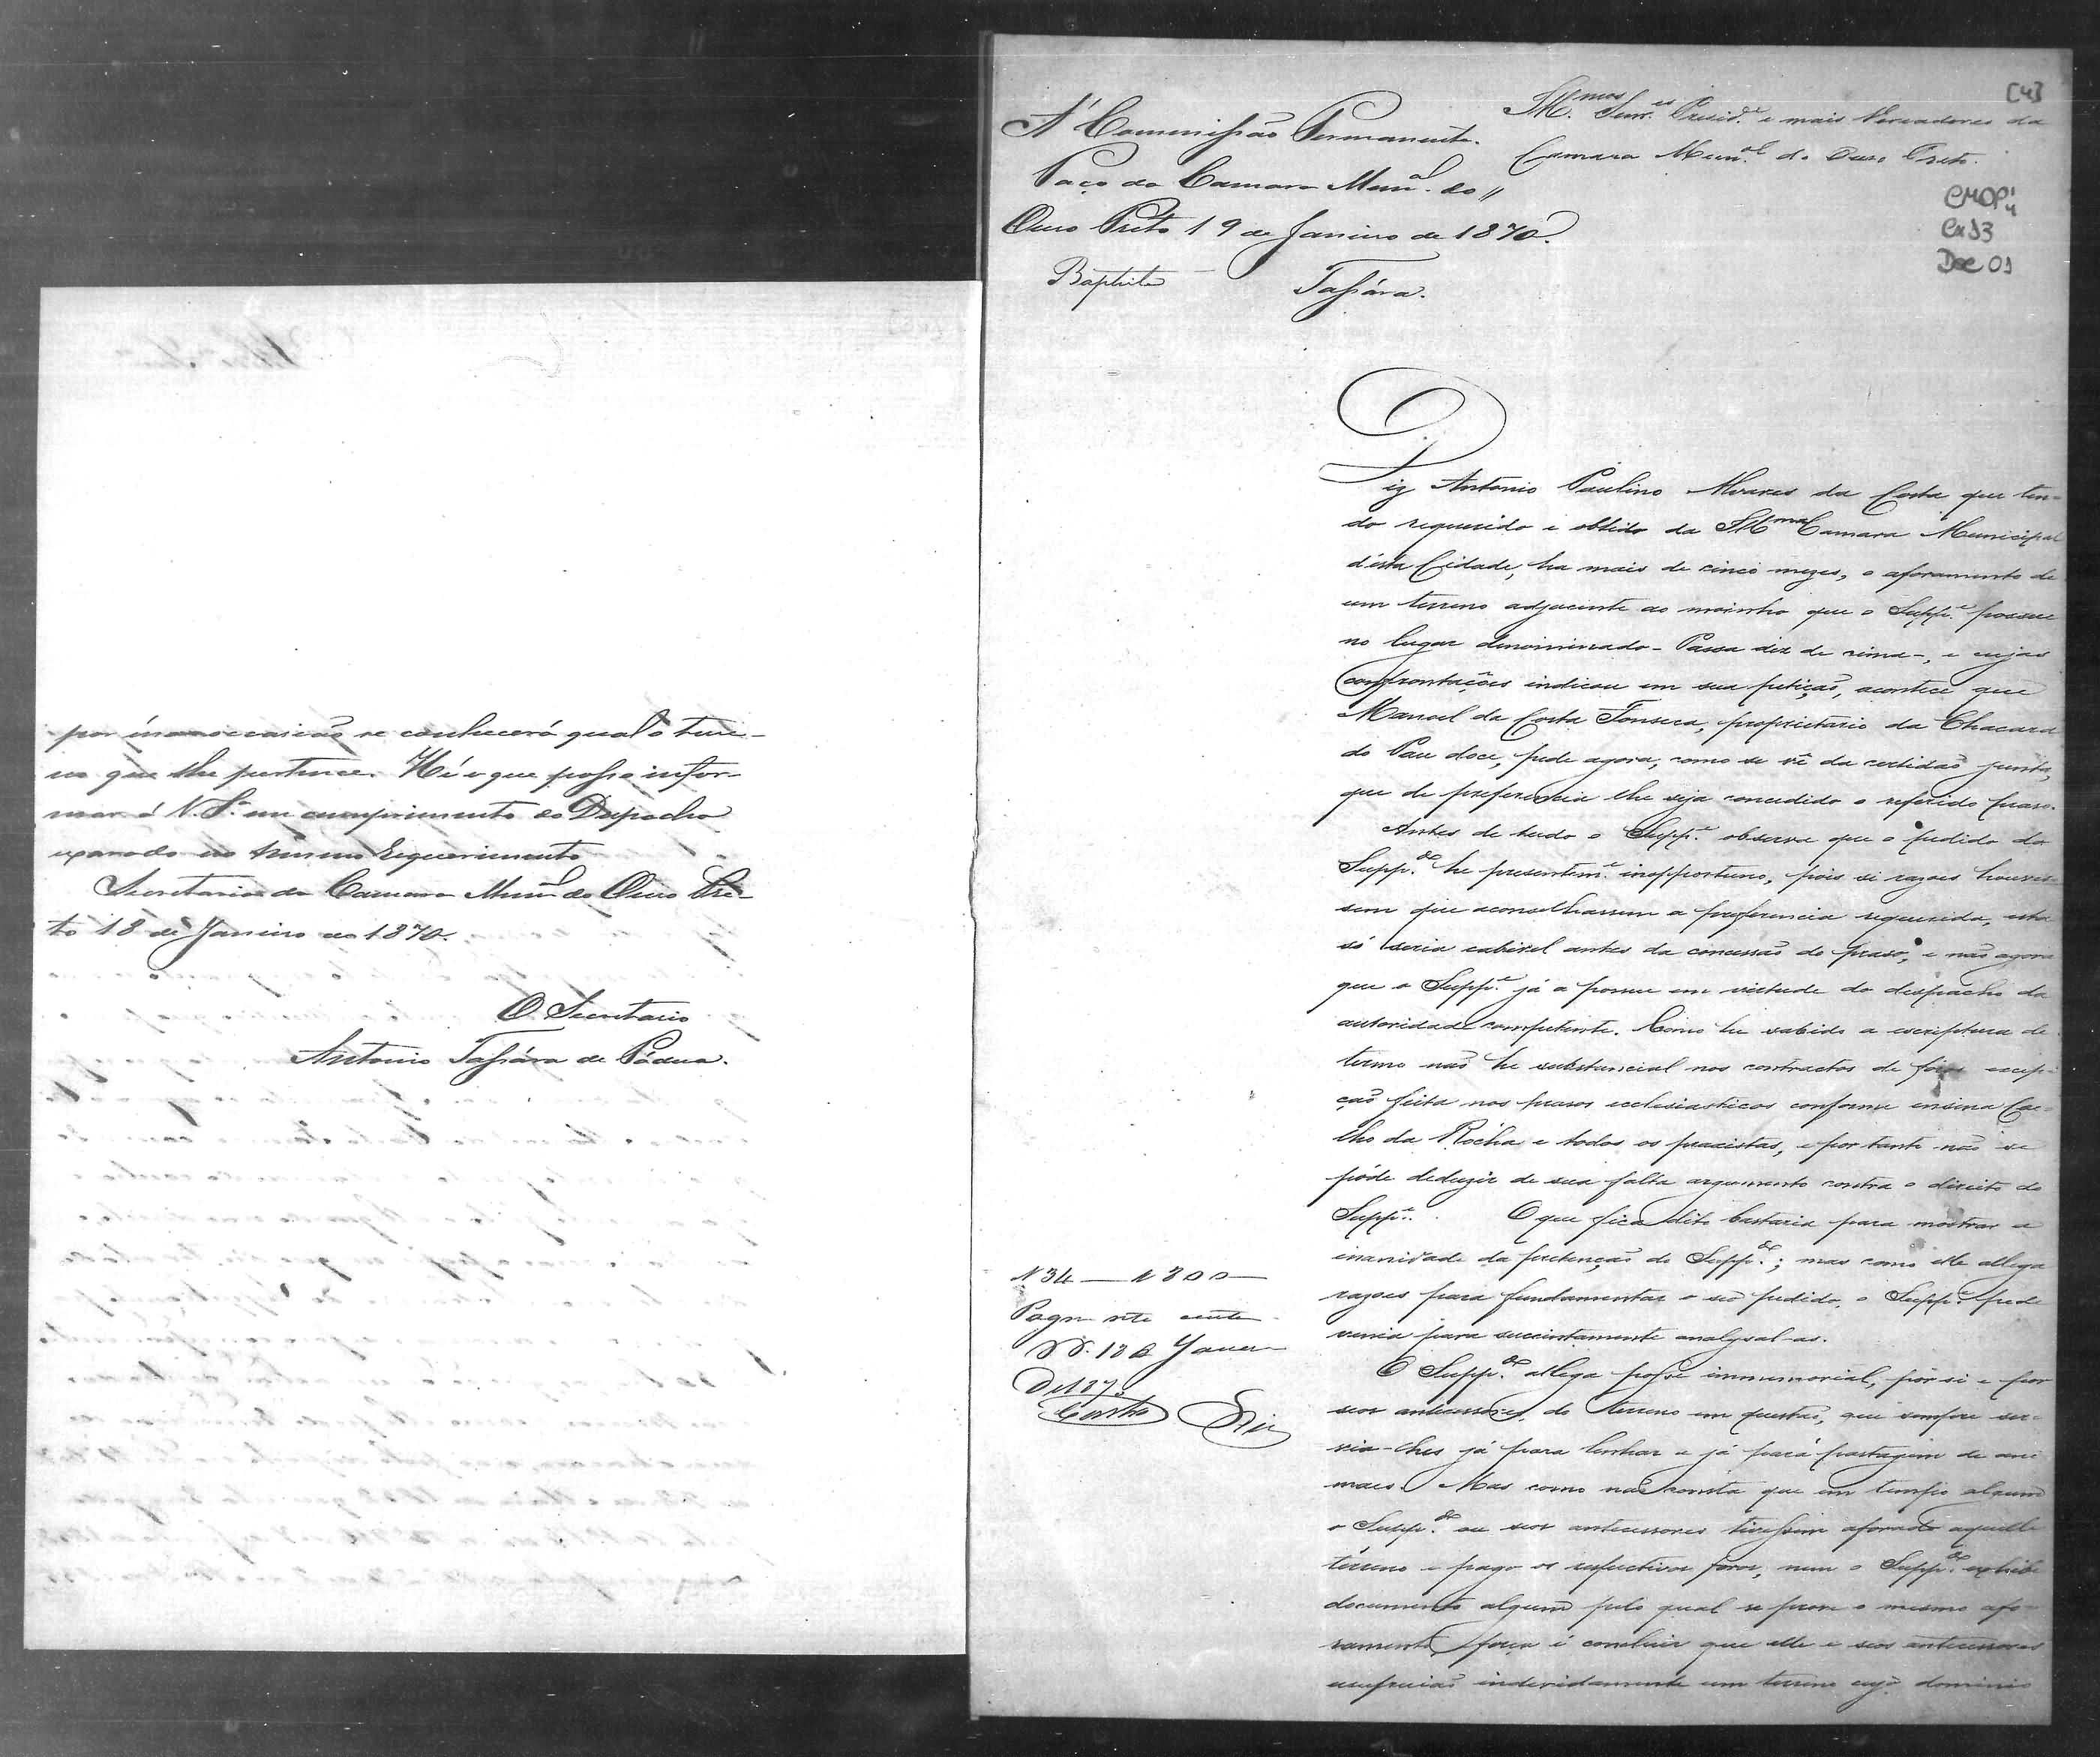 por essa occasião se conhecerá qual o terre-
no que lhe pertence. Hé o que posso infor-
mar á V. S.ª em cumprimento do Despacho
exarado no mesmo Requerimento
Secretaria da Camara Mun.al do Ouro Pre-
to 18 de Janeiro de 1870.
O Secretario
Antonio Tassára de Pádua.
[4]
Ill.mos Senr.es Presid.e e mais Vereadores da
Camara Mun.al do Ouro Preto.
CMOP
Cx 93
Doc 01
A' Commissão Permanente.
Paço da Camara Mun.al do
Ouro Preto 19 de Janeiro de 1870.
Baptista Tassára.
Diz Antonio Paulino Alvares da Costa que ten-
do requerido e obtido da Ill.ma Camara Municipal
d'esta Cidade, ha mais de cinco mezes, o aforamento de
um terreno adjacente ao moinho que o Supp.e possue
no lugar denominado - Passa dez de cima -, e cujas
confrontações indicou em sua petição, acontece que
Manoel da Costa Fonseca, proprietario da Chacara
do Pau doce, pede agora, como se vê da certidão junta,
que de preferencia lhe seja concedido o referido praso.
Antes de tudo o Supp.e observa que o pedido do
Supp.do he presentem.e inopportuno, pois si razoes houves-
sem que aconselhassem a preferencia requerida, esta
só seria cabivel antes da concessão do praso, e não agora
que o Supp.e já o possue em virtude do despacho da
autoridade competente. Como he sabido a escriptura de
termo não he substancial nos contractos de foros excep-
ção feita nos prasos ecclesiasticos conforme ensina Coe-
lho da Rocha e todos os praxistas, e por tanto não se
póde deduzir de sua falta argumento contra o direito do
Supp.e. O que fica dito bastaria para mostrar a
inanidade da pretenção do Supp.do; mas como elle allega
razoes para fundamentar o seo pedido, o Supp.e pede
venia para succintamente analysal-as.
O Supp.do allega posse immemorial, por si e por
seos antecessores, do terreno em questão, que sempre ser-
via-lhes já para lenhar e já para pastagem de ani
maes. Mas como não consta que em tempo algum
o Supp.do ou seos antecessores tivessem aforado aquelle
terreno e pago os respectivos foros, nem o Supp.do exhibe
documento algum pelo qual se prove o mesmo afo-
ramento, força é concluir que elle e seos antecessores
usufruião indevidamente um terreno cujo dominio
N 34 200
Pagou
De 1870